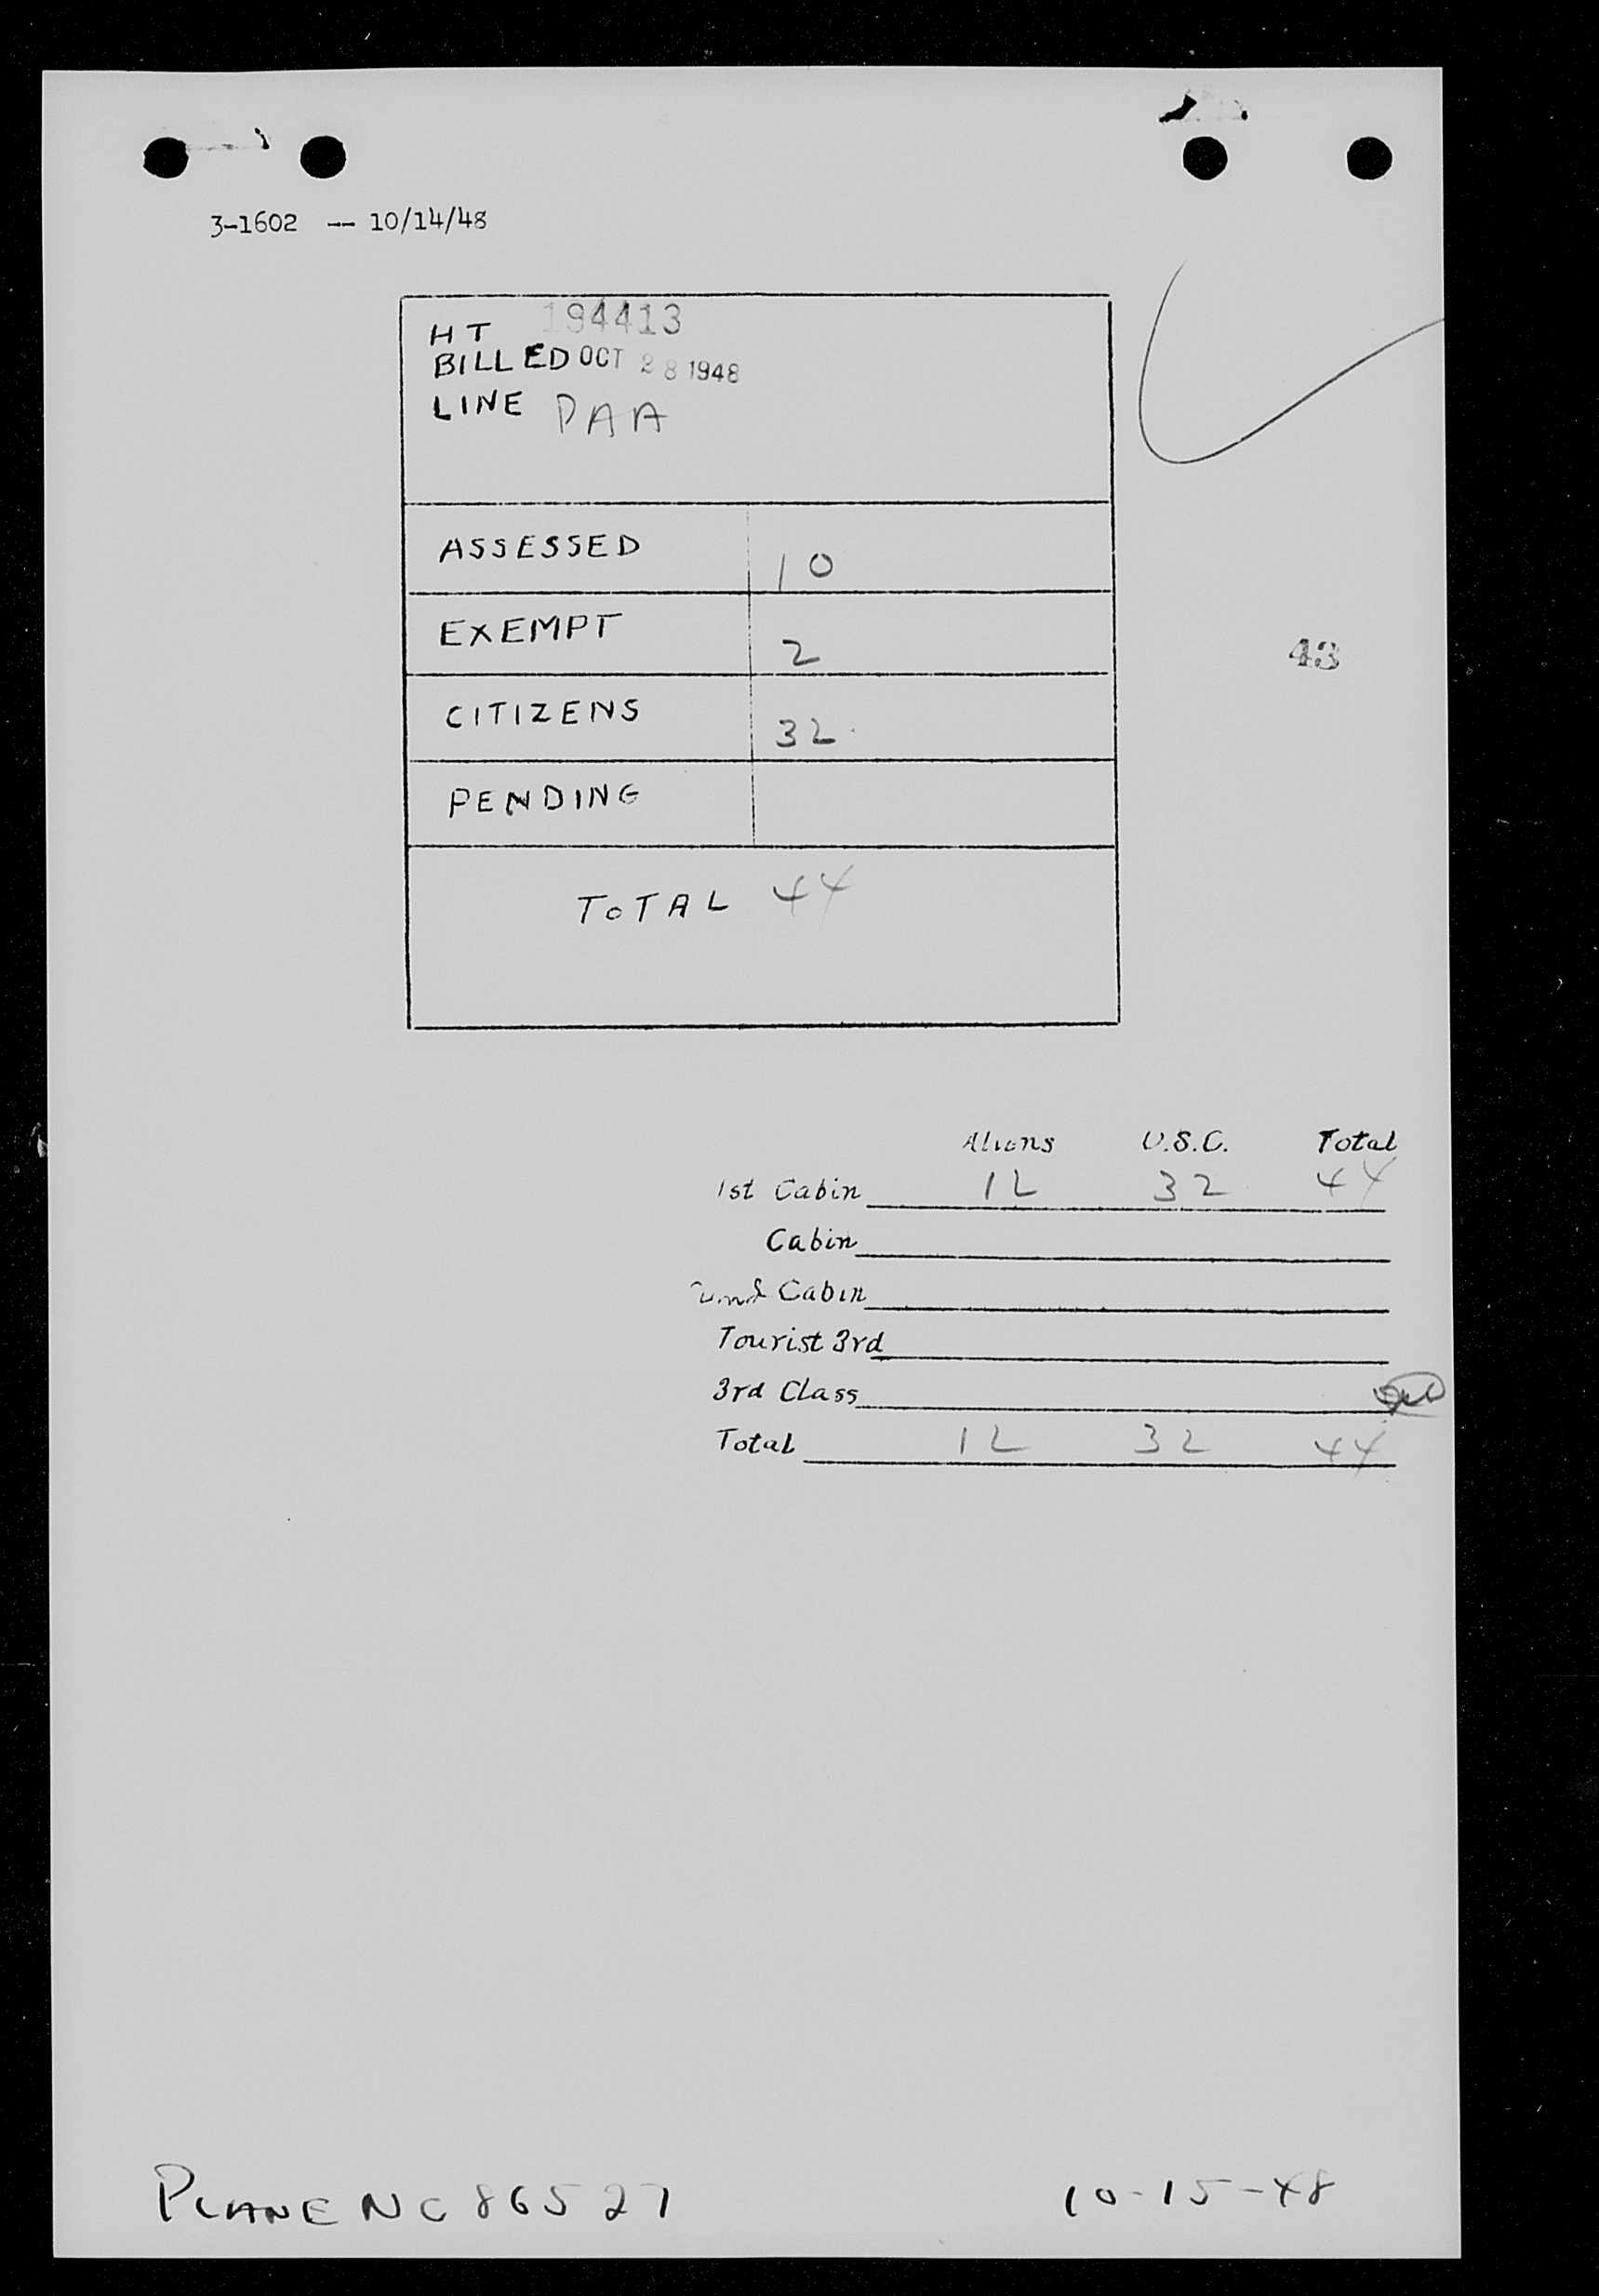 3-1602 -- 10/14/48
HT 194413
BILLED OCT 28 1948
LINE PAA
ASSESSED 10
EXEMPT 2
43
CITIZENS 32
PENDING
TOTAL 44
Aliens U.S.C. Total
1st Cabin 12 32 44
Cabin
Cabin
Tourist 3rd
3rd Class
Total 12 32 44
PLANE NC86527 10-15-48